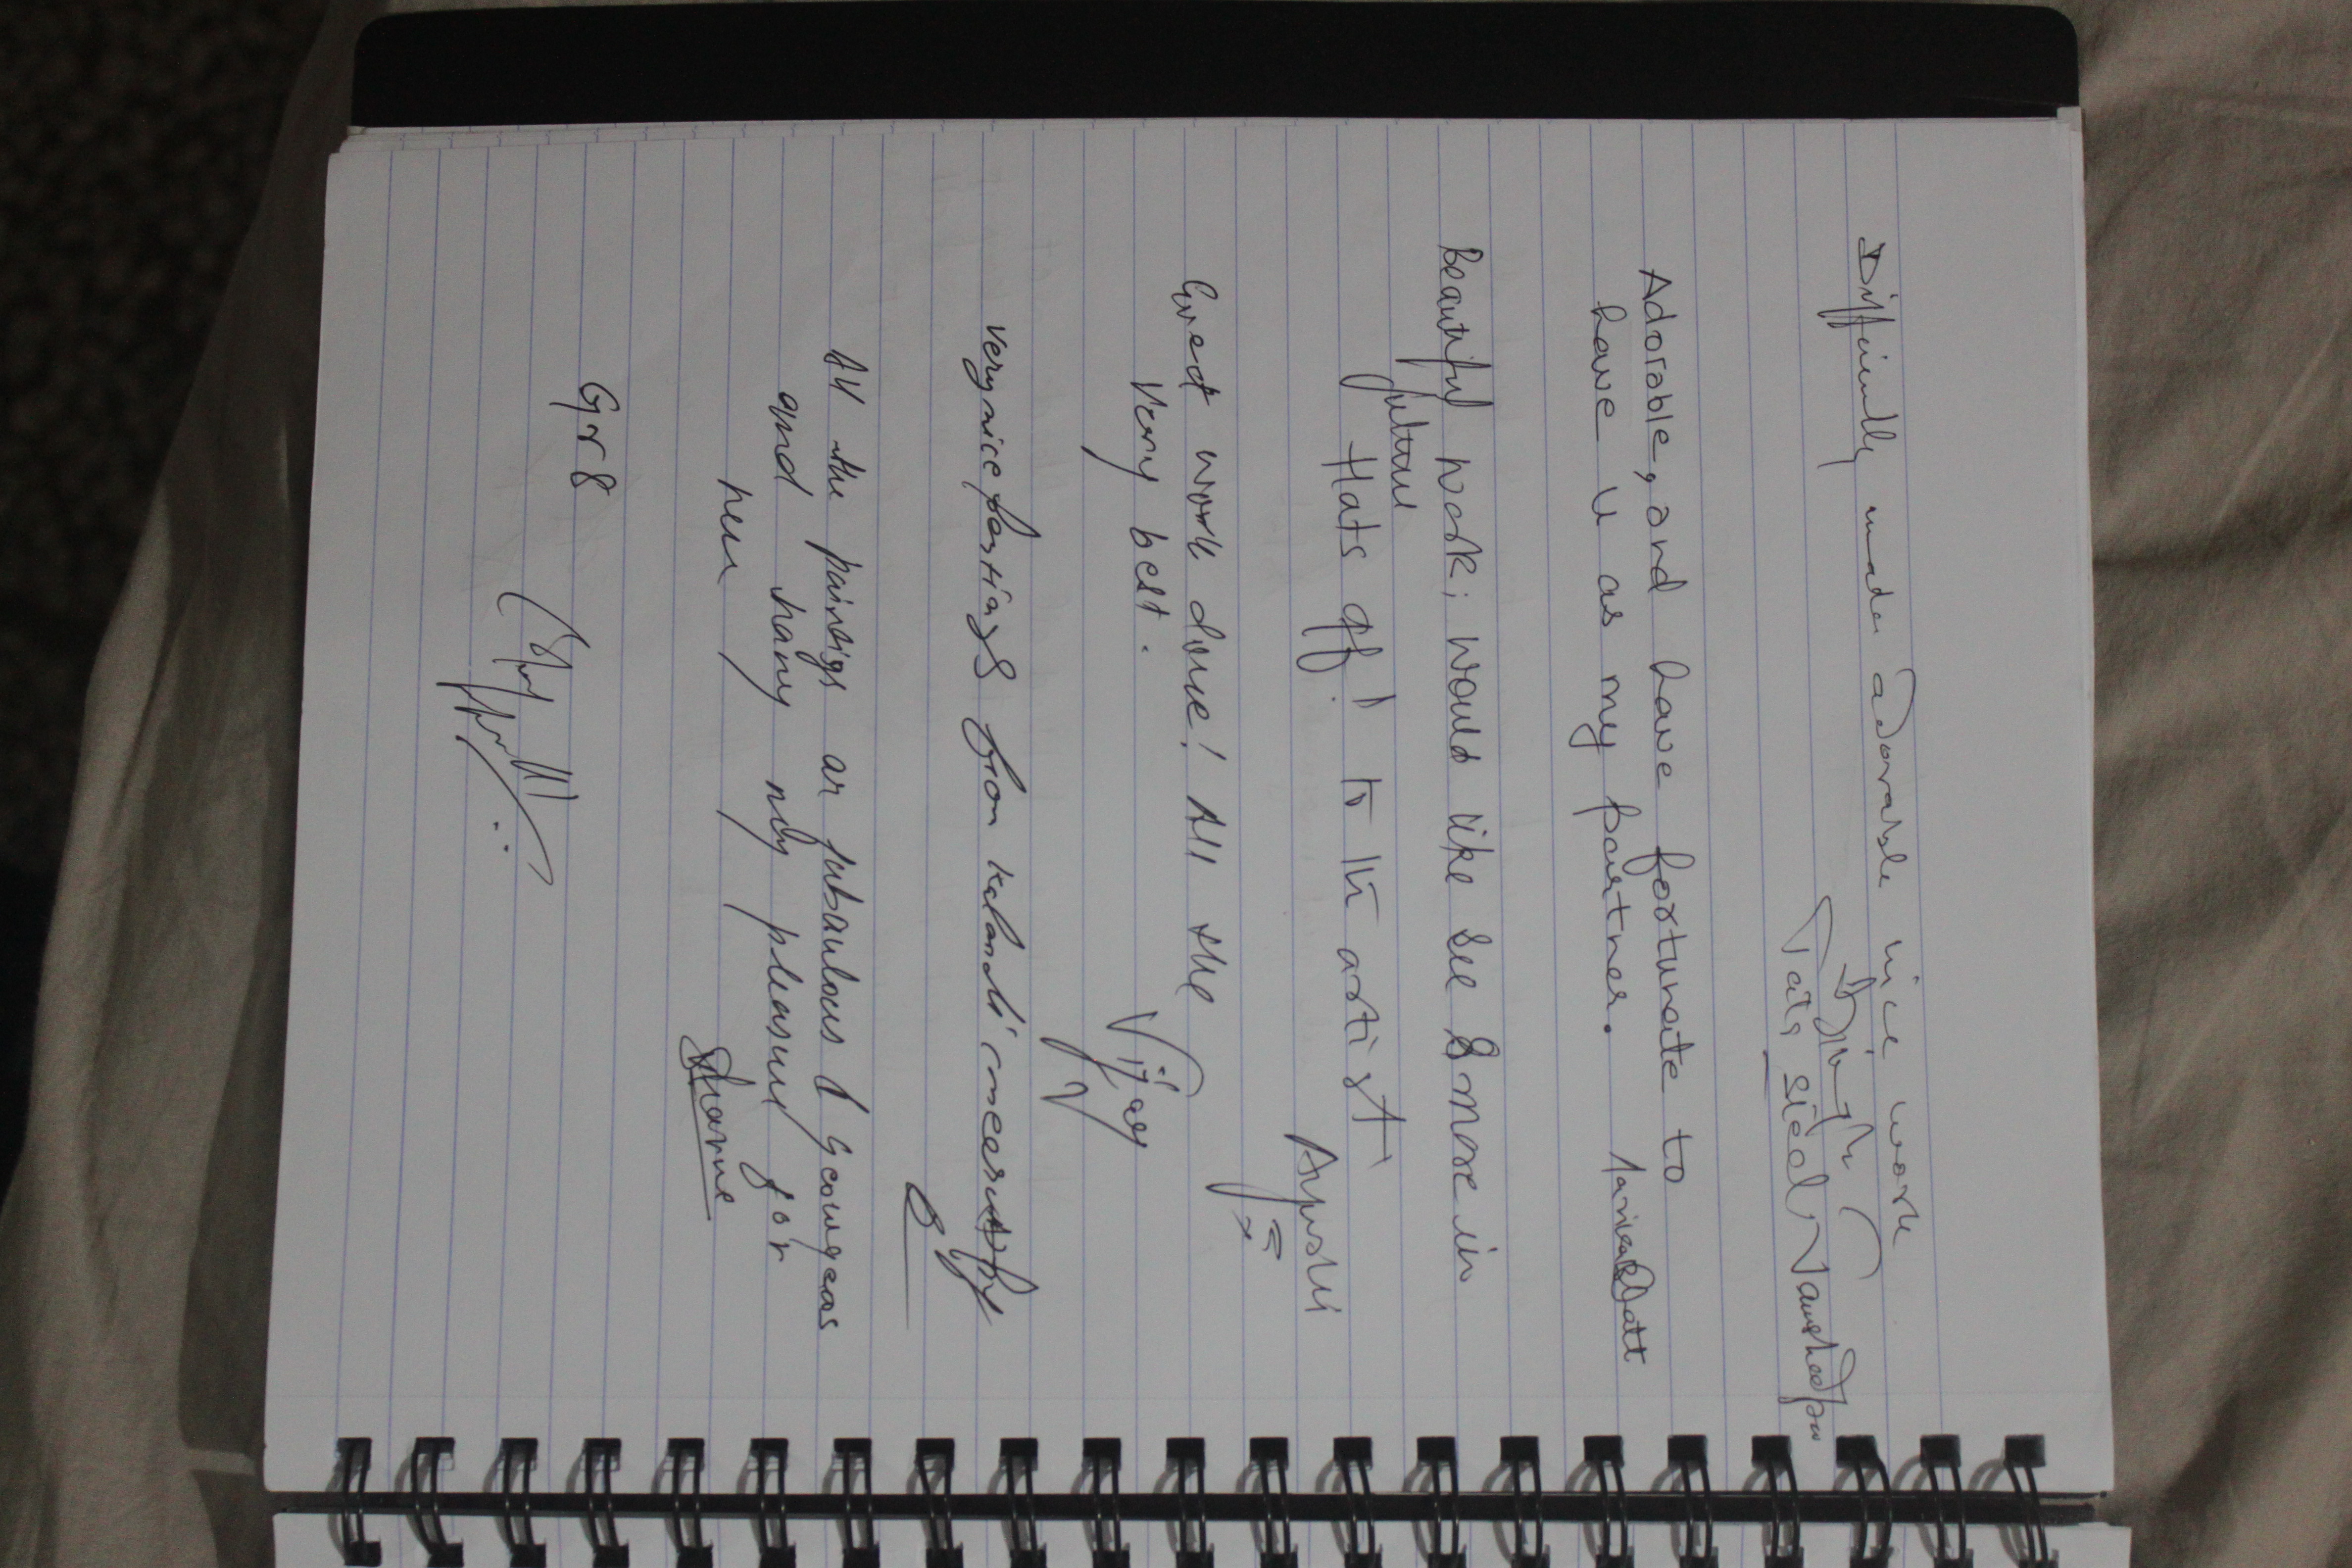 Difficultly made adorable nice work
D Singh
Tata Steel Jamshedpur
Adorable, and have fortunate to
have u as my partner.
Beautiful work; would like see & more in
future
Hats off! to the artist
Ayushi
Great work done! All the
very best.
Vijay
very nice paintings from kalandi
All the paintigs ar fabaulous & Geougeous
and hany nily pleasure for
new
Gr8